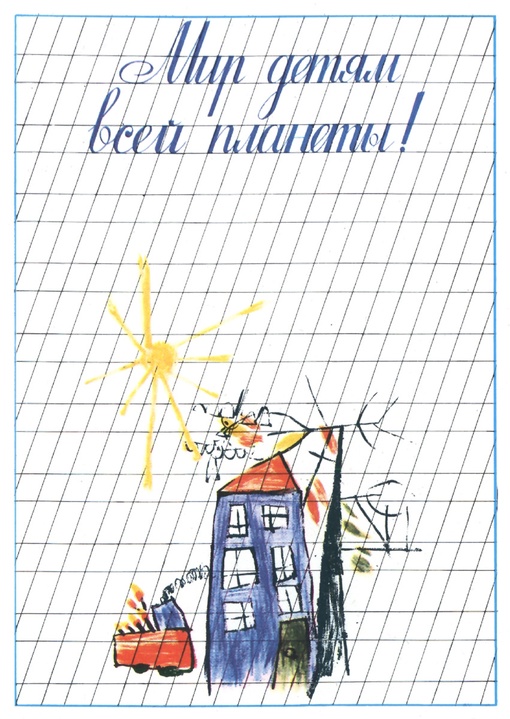 Мир детям
всей планеты!